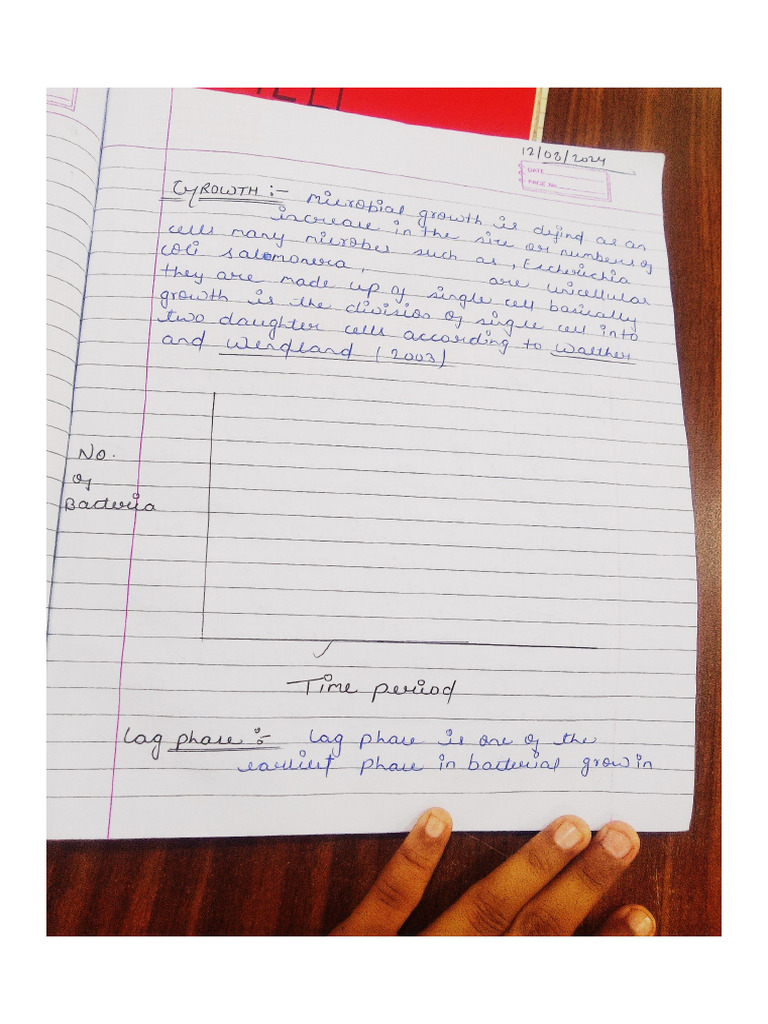 12/08/2024
DATE
PAGE No.
GROWTH :- Microbial growth is defind as an
increase in the size or numbers of
cells many microbes such as, Escherichia
coli salomonera, are unicellular
they are made up of single cell basically
growth is the division of single cell into
two daughter cells according to Walther
and Wendland (2003)
No.
of
Bacteria
Time period
Lag phase :- Lag phase is one of the
earliest phase in bacterial grow in